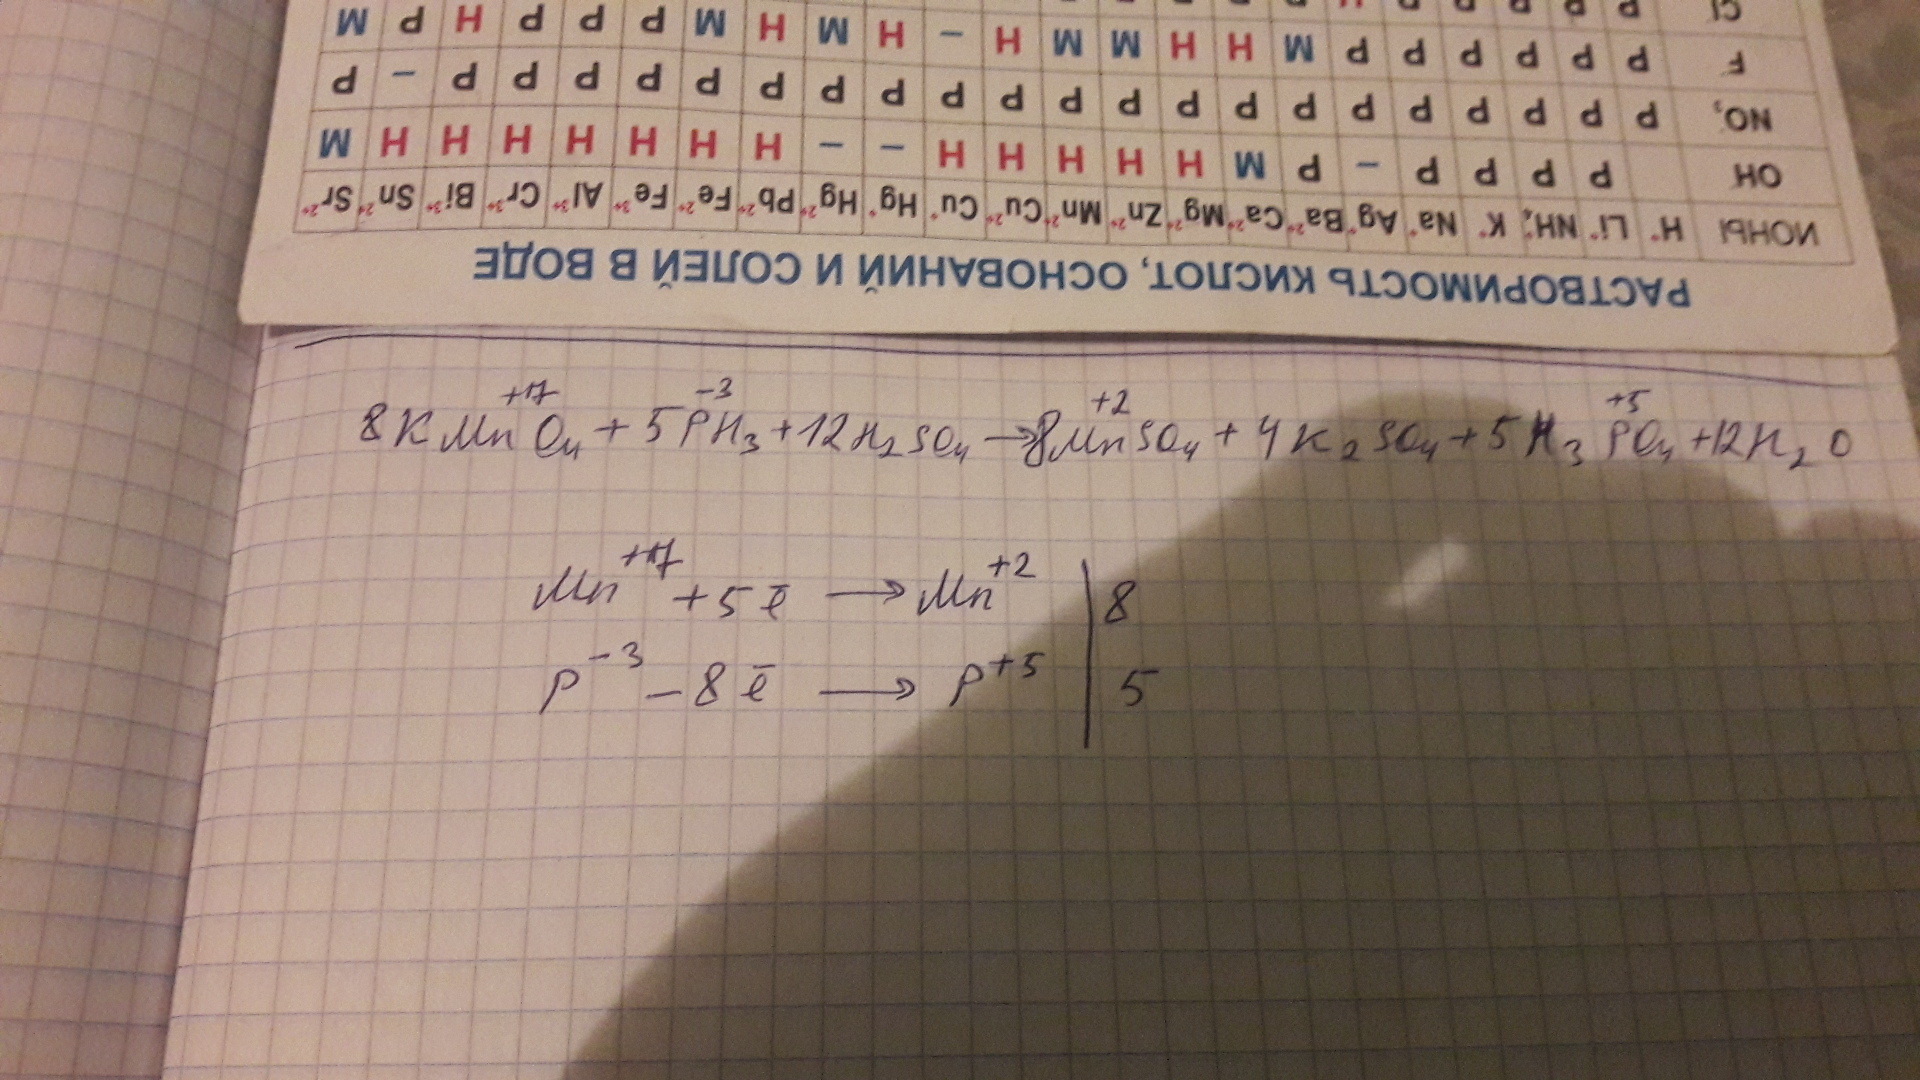 РАСТВОРИМОСТЬ КИСЛОТ, ОСНОВАНИЙ И СОЛЕЙ В ВОДЕ
ИОНЫ H⁺ Li⁺ NH₄⁺ K⁺ Na⁺ Ag⁺ Ba²⁺ Ca²⁺ Mg²⁺ Zn²⁺ Mn²⁺ Cu²⁺ Cu⁺ Hg⁺ Hg²⁺ Pb²⁺ Fe²⁺ Fe³⁺ Al³⁺ Cr³⁺ Bi³⁺ Sn²⁺ Sr²⁺
OH P P P P – P M H H H H H – – H H H H H H H M
NO₃ P P P P P P P P P P P P P P P P P P P P P – P
F P P P P P P M H H M M H – H M H M P P P H P M
Cl
8KMn⁺⁷O₄ + 5P⁻³H₃ + 12H₂SO₄ → 8Mn⁺²SO₄ + 4K₂SO₄ + 5H₃P⁺⁵O₄ + 12H₂O
Mn⁺⁷ + 5ē → Mn⁺² | 8
P⁻³ – 8ē → P⁺⁵ | 5